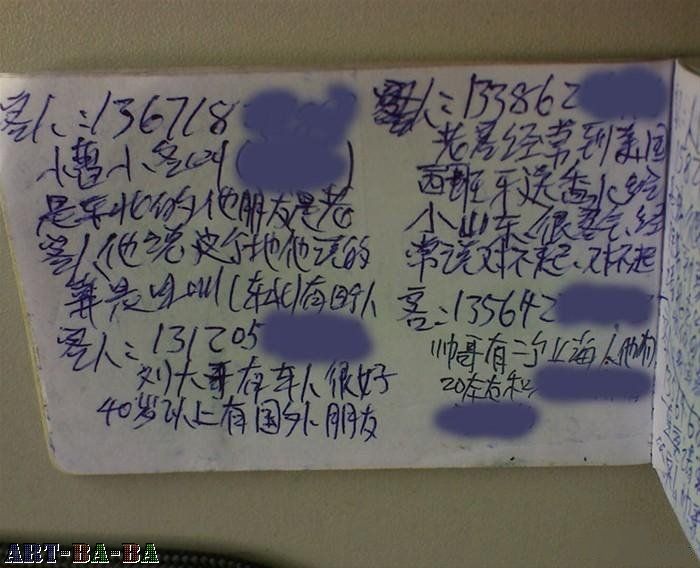 客人:136718
小曹小客叫( )
是东北的他朋友是老
客人他说这个地他说的
算是四川(东北)有四个人
客人:131205
刘大哥有车人很好
40岁以上有国外朋友
客人:133862
老爸经常到美国
西班牙送香水给
小山东、很客气、经
常说对不起、对不起
客:135642
帅哥有三个上海人他们
20左右和
ART-BA-BA